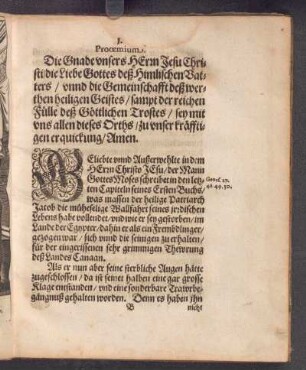 1.
Prooemium.
Die Gnade vnsers HErrn Jesu Chri-
sti die Liebe Gottes deß Himlischen Vat-
ters / vnnd die Gemeinschafft deß wer-
then heiligen Geistes / sampt der reichen
Fülle deß Göttlichen Trostes / sey mit
vns allen dieses Orths / zu vnser kräffti-
gen erquickung / Amen.
GEliebte vnnd Außerwehlte in dem
HErrn Christo JEsu / der Mann
Gottes Moses schreibet in den letz-
ten Capiteln seines Ersten Buchs /
was massen der heilige Patriarch
Jacob die müheselige Wallfahrt seines jrrdischen
Lebens habe vollendet / vnd wie er sey gestorben / im
Lande der Egypter / dahin er als ein Frembdlinger
gezogen war / sich vnnd die seinigen zu erhalten /
für der eingerissenen sehr grimmigen Thewrung
deß Landes Canaan.
Als er nun aber seine sterbliche Augen hatte
zugeschlossen / da ist seinet halben eine gar grosse
Klage entstanden / vnd eine sonderbare Trawrbe-
gängnuß gehalten worden. Denn es haben jhn
B nicht